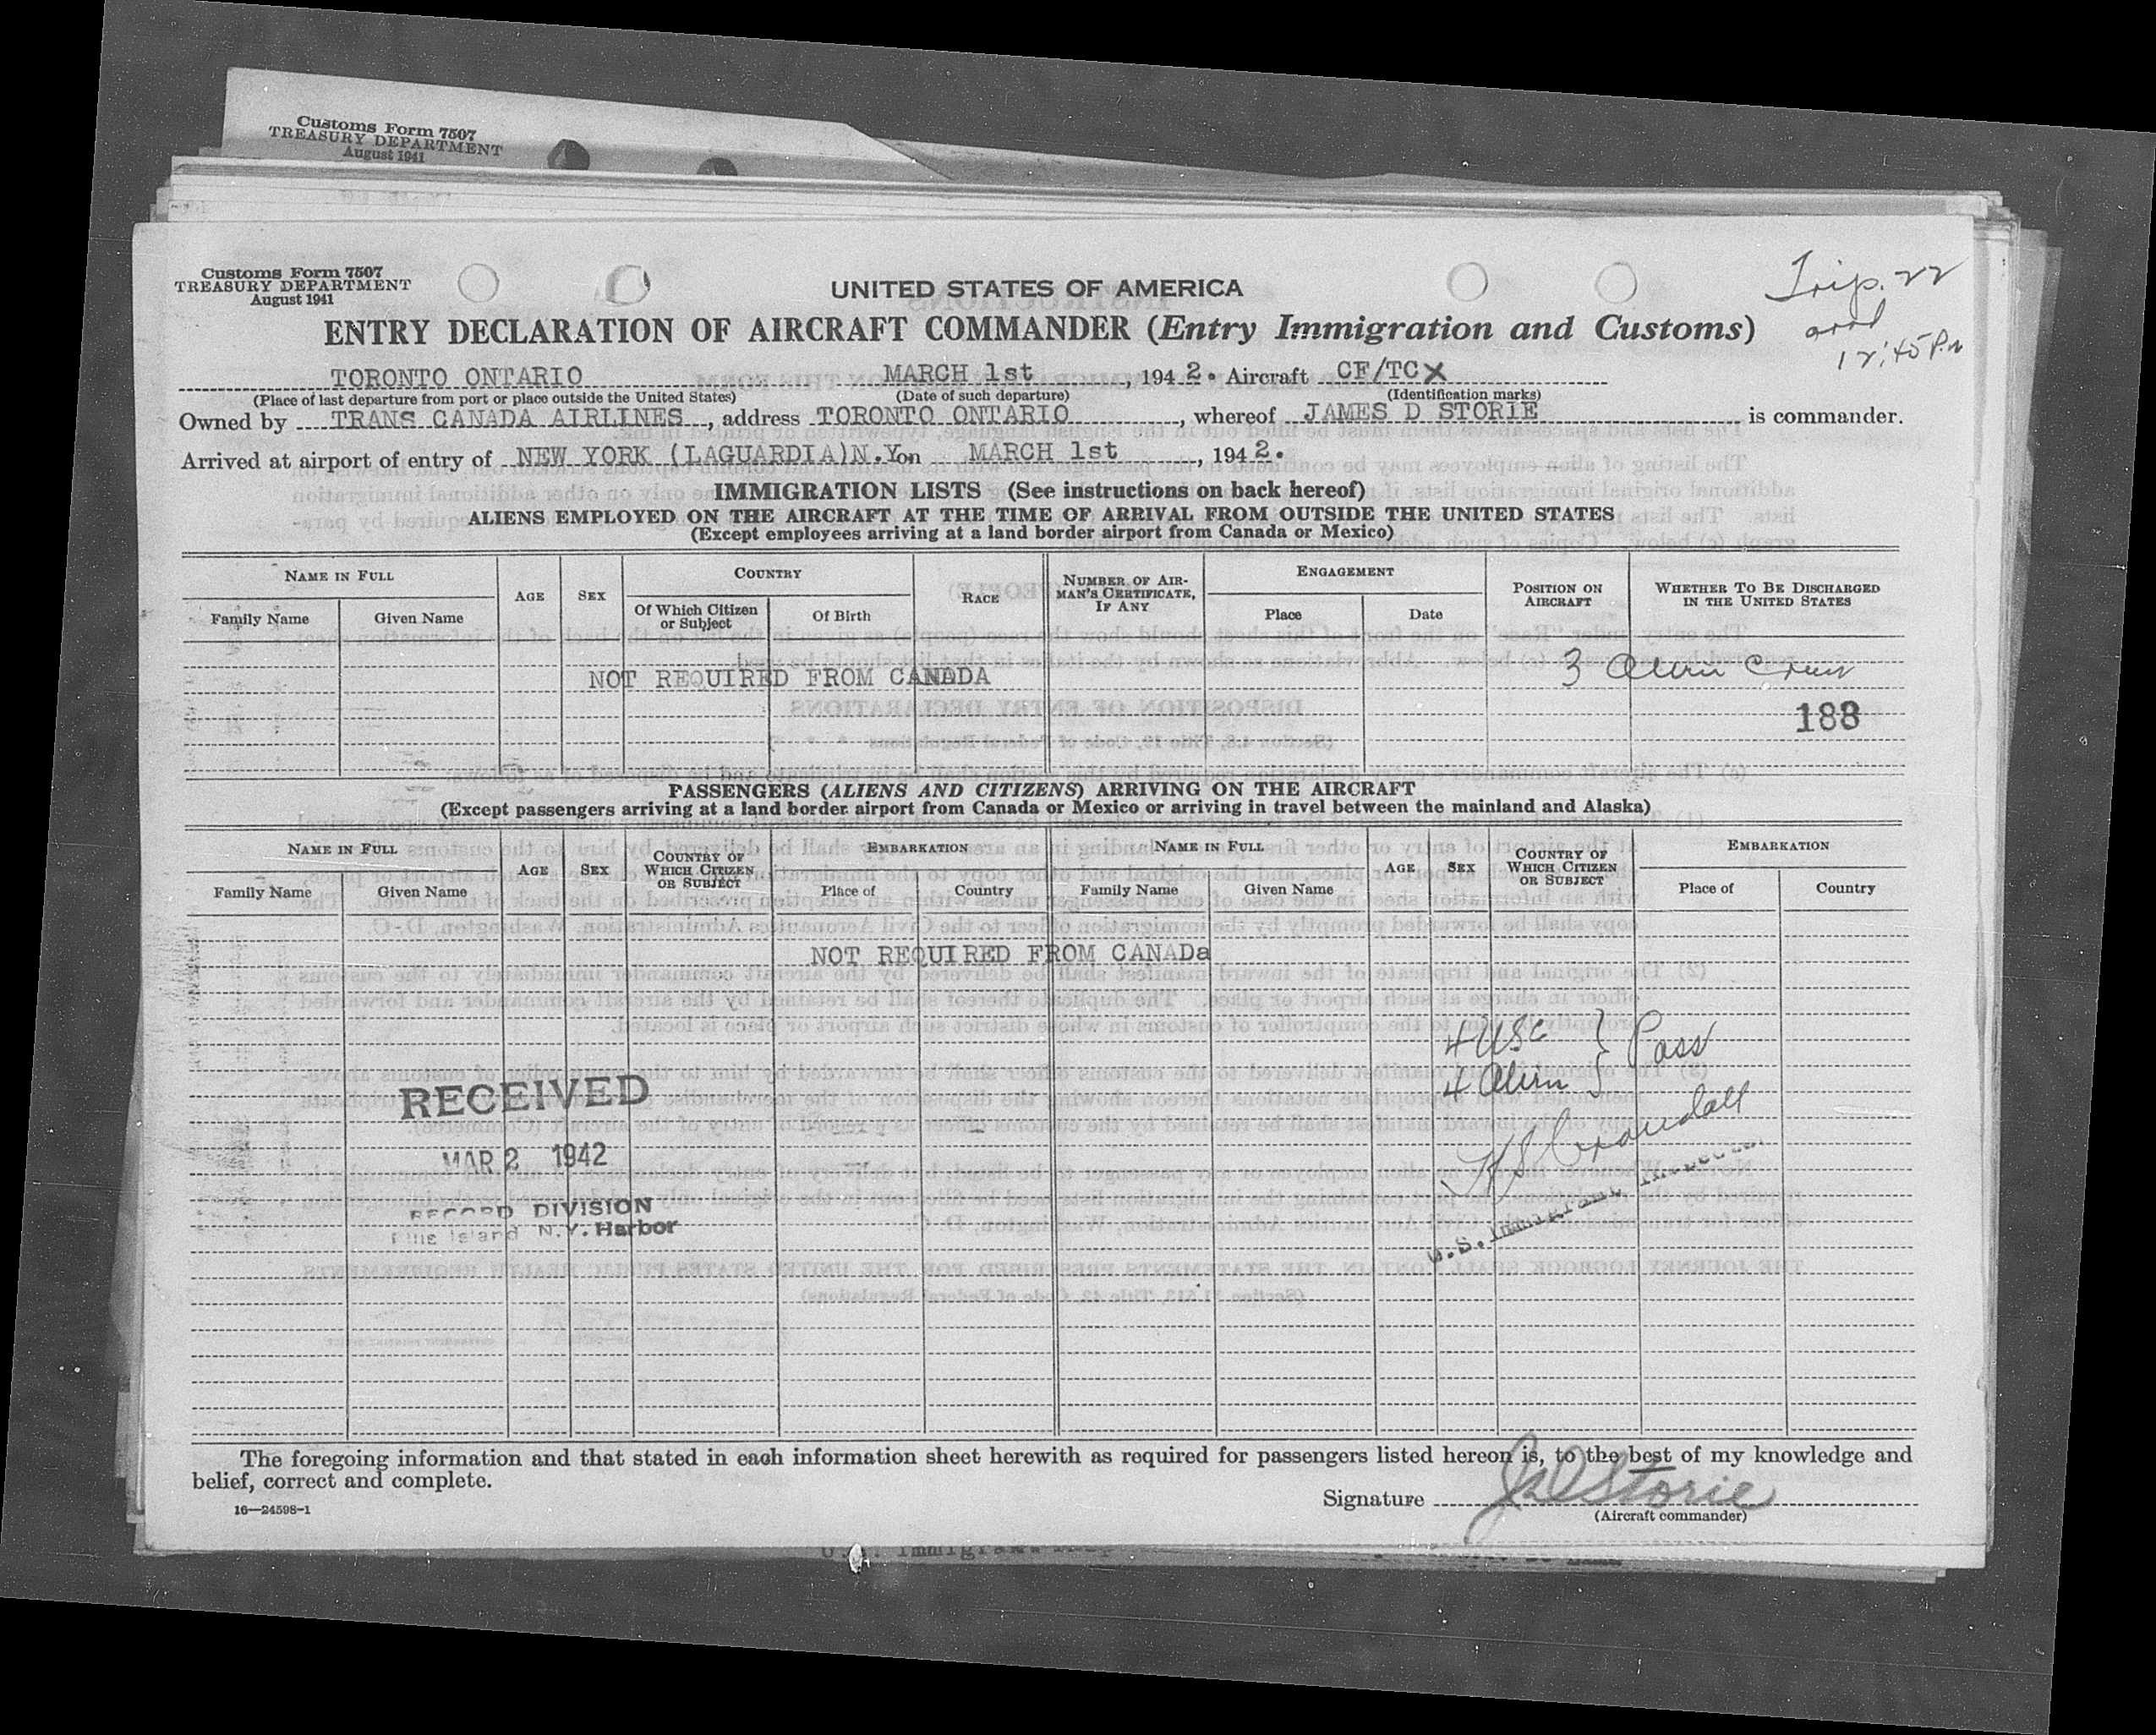 Customs Form 7507
TREASURY DEPARTMENT
August 1941
Customs Form 7507
TREASURY DEPARTMENT
August 1941
UNITED STATES OF AMERICA
Trip. 22
ENTRY DECLARATION OF AIRCRAFT COMMANDER (Entry Immigration and Customs)
arrd
12:45 P.m
TORONTO ONTARIO MARCH 1st, 1942. Aircraft CF/TCX
(Place of last departure from port or place outside the United States) (Date of such departure) (Identification marks)
Owned by TRANS CANADA AIRLINES, address TORONTO ONTARIO, whereof JAMES D STORIE is commander.
Arrived at airport of entry of NEW YORK (LAGUARDIA)N.Y on MARCH 1st, 1942.
IMMIGRATION LISTS (See instructions on back hereof)
ALIENS EMPLOYED ON THE AIRCRAFT AT THE TIME OF ARRIVAL FROM OUTSIDE THE UNITED STATES
(Except employees arriving at a land border airport from Canada or Mexico)
NAME IN FULL AGE SEX COUNTRY RACE NUMBER OF AIRMAN'S CERTIFICATE, IF ANY ENGAGEMENT POSITION ON AIRCRAFT WHETHER TO BE DISCHARGED IN THE UNITED STATES
Family Name Given Name Of Which Citizen or Subject Of Birth Place Date
NOT REQUIRED FROM CANADA 3 Alien Crew
188
PASSENGERS (ALIENS AND CITIZENS) ARRIVING ON THE AIRCRAFT
(Except passengers arriving at a land border airport from Canada or Mexico or arriving in travel between the mainland and Alaska)
NAME IN FULL AGE SEX COUNTRY OF WHICH CITIZEN OR SUBJECT EMBARKATION NAME IN FULL AGE SEX COUNTRY OF WHICH CITIZEN OR SUBJECT EMBARKATION
Family Name Given Name Place of Country Family Name Given Name Place of Country
NOT REQUIRED FROM CANADa
4 USC } Pass
4 Alien
RECEIVED
H S Crandall
MAR 2 1942
U.S. Immigrant Inspector
RECORD DIVISION
Ellis Island N.Y. Harbor
The foregoing information and that stated in each information sheet herewith as required for passengers listed hereon is, to the best of my knowledge and
belief, correct and complete.
Signature J D Storie
16—24598-1
(Aircraft commander)